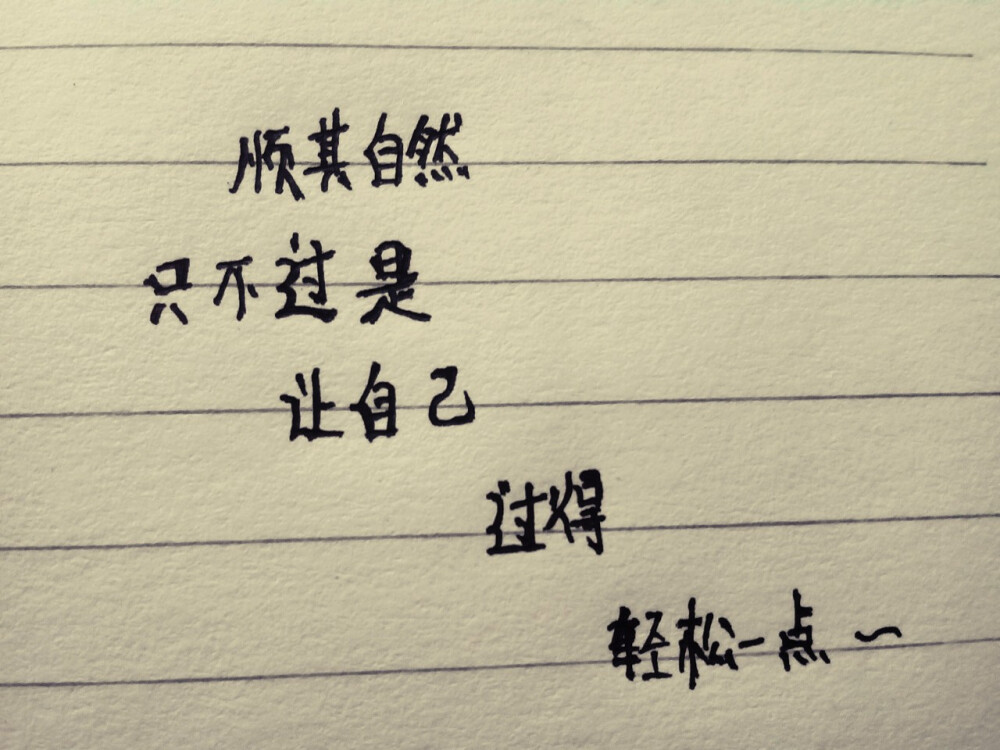 顺其自然
只不过是
让自己
过得
轻松一点～